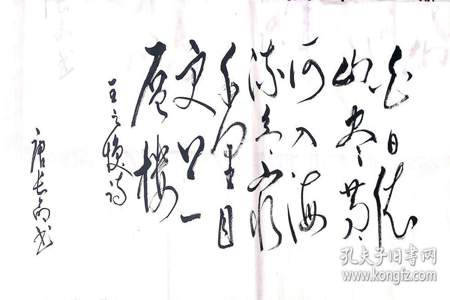 白日依
山尽黄
河入海
流欲穷
千里目
更上一
层楼
王之涣诗
孔夫子旧书网
www.kongfz.com